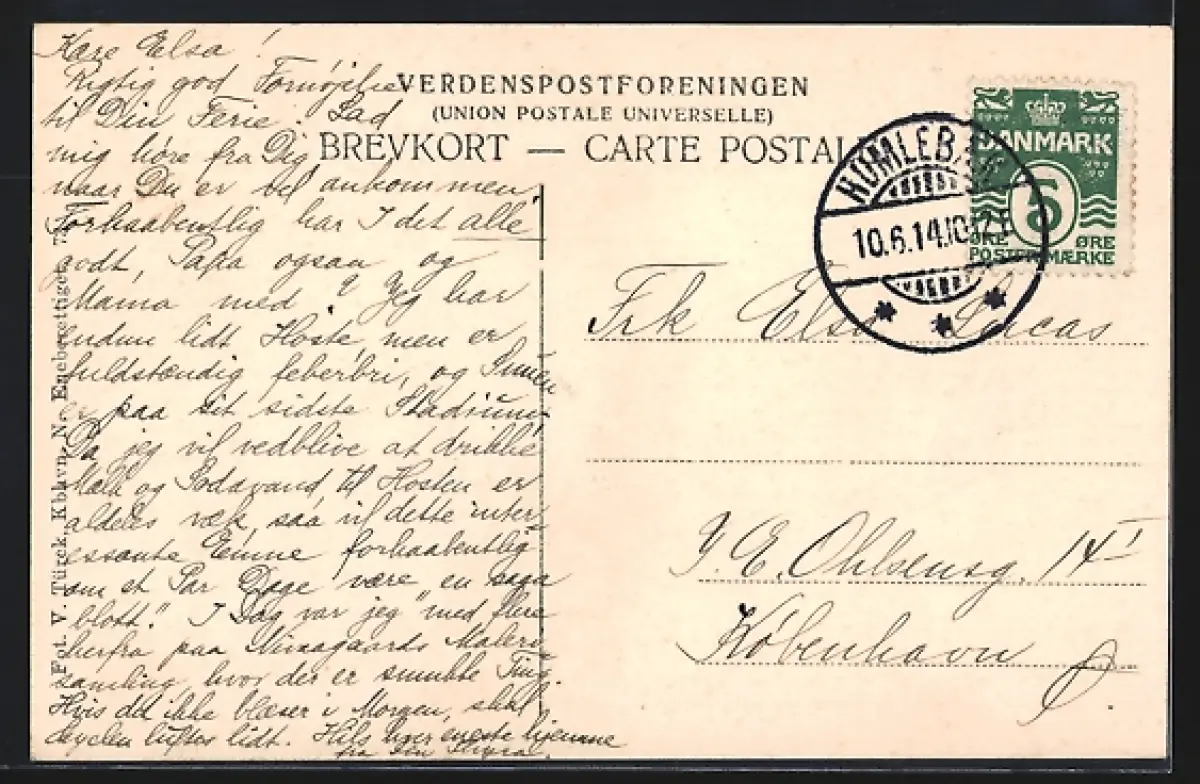 Kære Elsa!
Rigtig god Fornøjelse
til Din Ferie. Lad
mig høre fra Dig,
naar Du er vel ankommen.
Forhaabentlig har I det alle
godt, Papa ogsaa og
Mama med? Jeg har
endnu lidt Hoste, men er
fuldstændig feberfri, og Snuen
er paa sit sidste Stadium.
Da jeg vil vedblive at drikke
Mælk og Sodavand, til Hosten er
aldeles væk, saa vil dette inter-
essante Emne forhaabentlig
om et Par Dage være "en saga
blott." I Dag var jeg med flere
herfra paa Nivaagaards Maleri-
samling, hvor der er smukke Ting.
Hvis det ikke blæser i Morgen, skal
luftes lidt. Hils hver eneste hjemme
fra
Fot. V. Türck, Kbhavn, N. Eneberettiget.
VERDENSPOSTFORENINGEN
(UNION POSTALE UNIVERSELLE)
BREVKORT — CARTE POSTALE
HUMLEBÆK
10.6.14.10-12F
DANMARK
5
ØRE ØRE
POSTFRIMÆRKE
Frk Elsa Lucas
J. E. Ohlsensg. 14 I
København Ø.